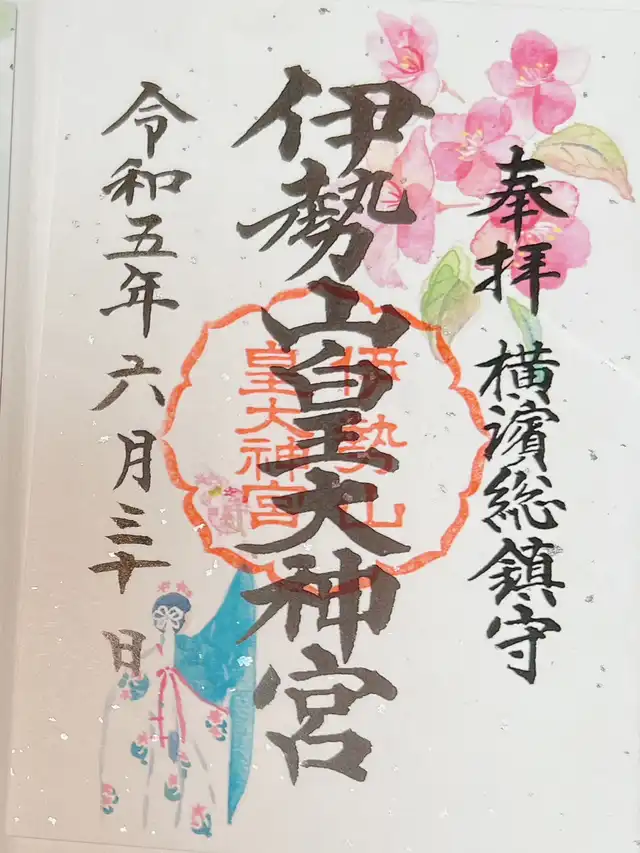 奉拝 横濱総鎮守
伊勢山皇大神宮
伊勢山
皇大神宮
令和五年六月三十日